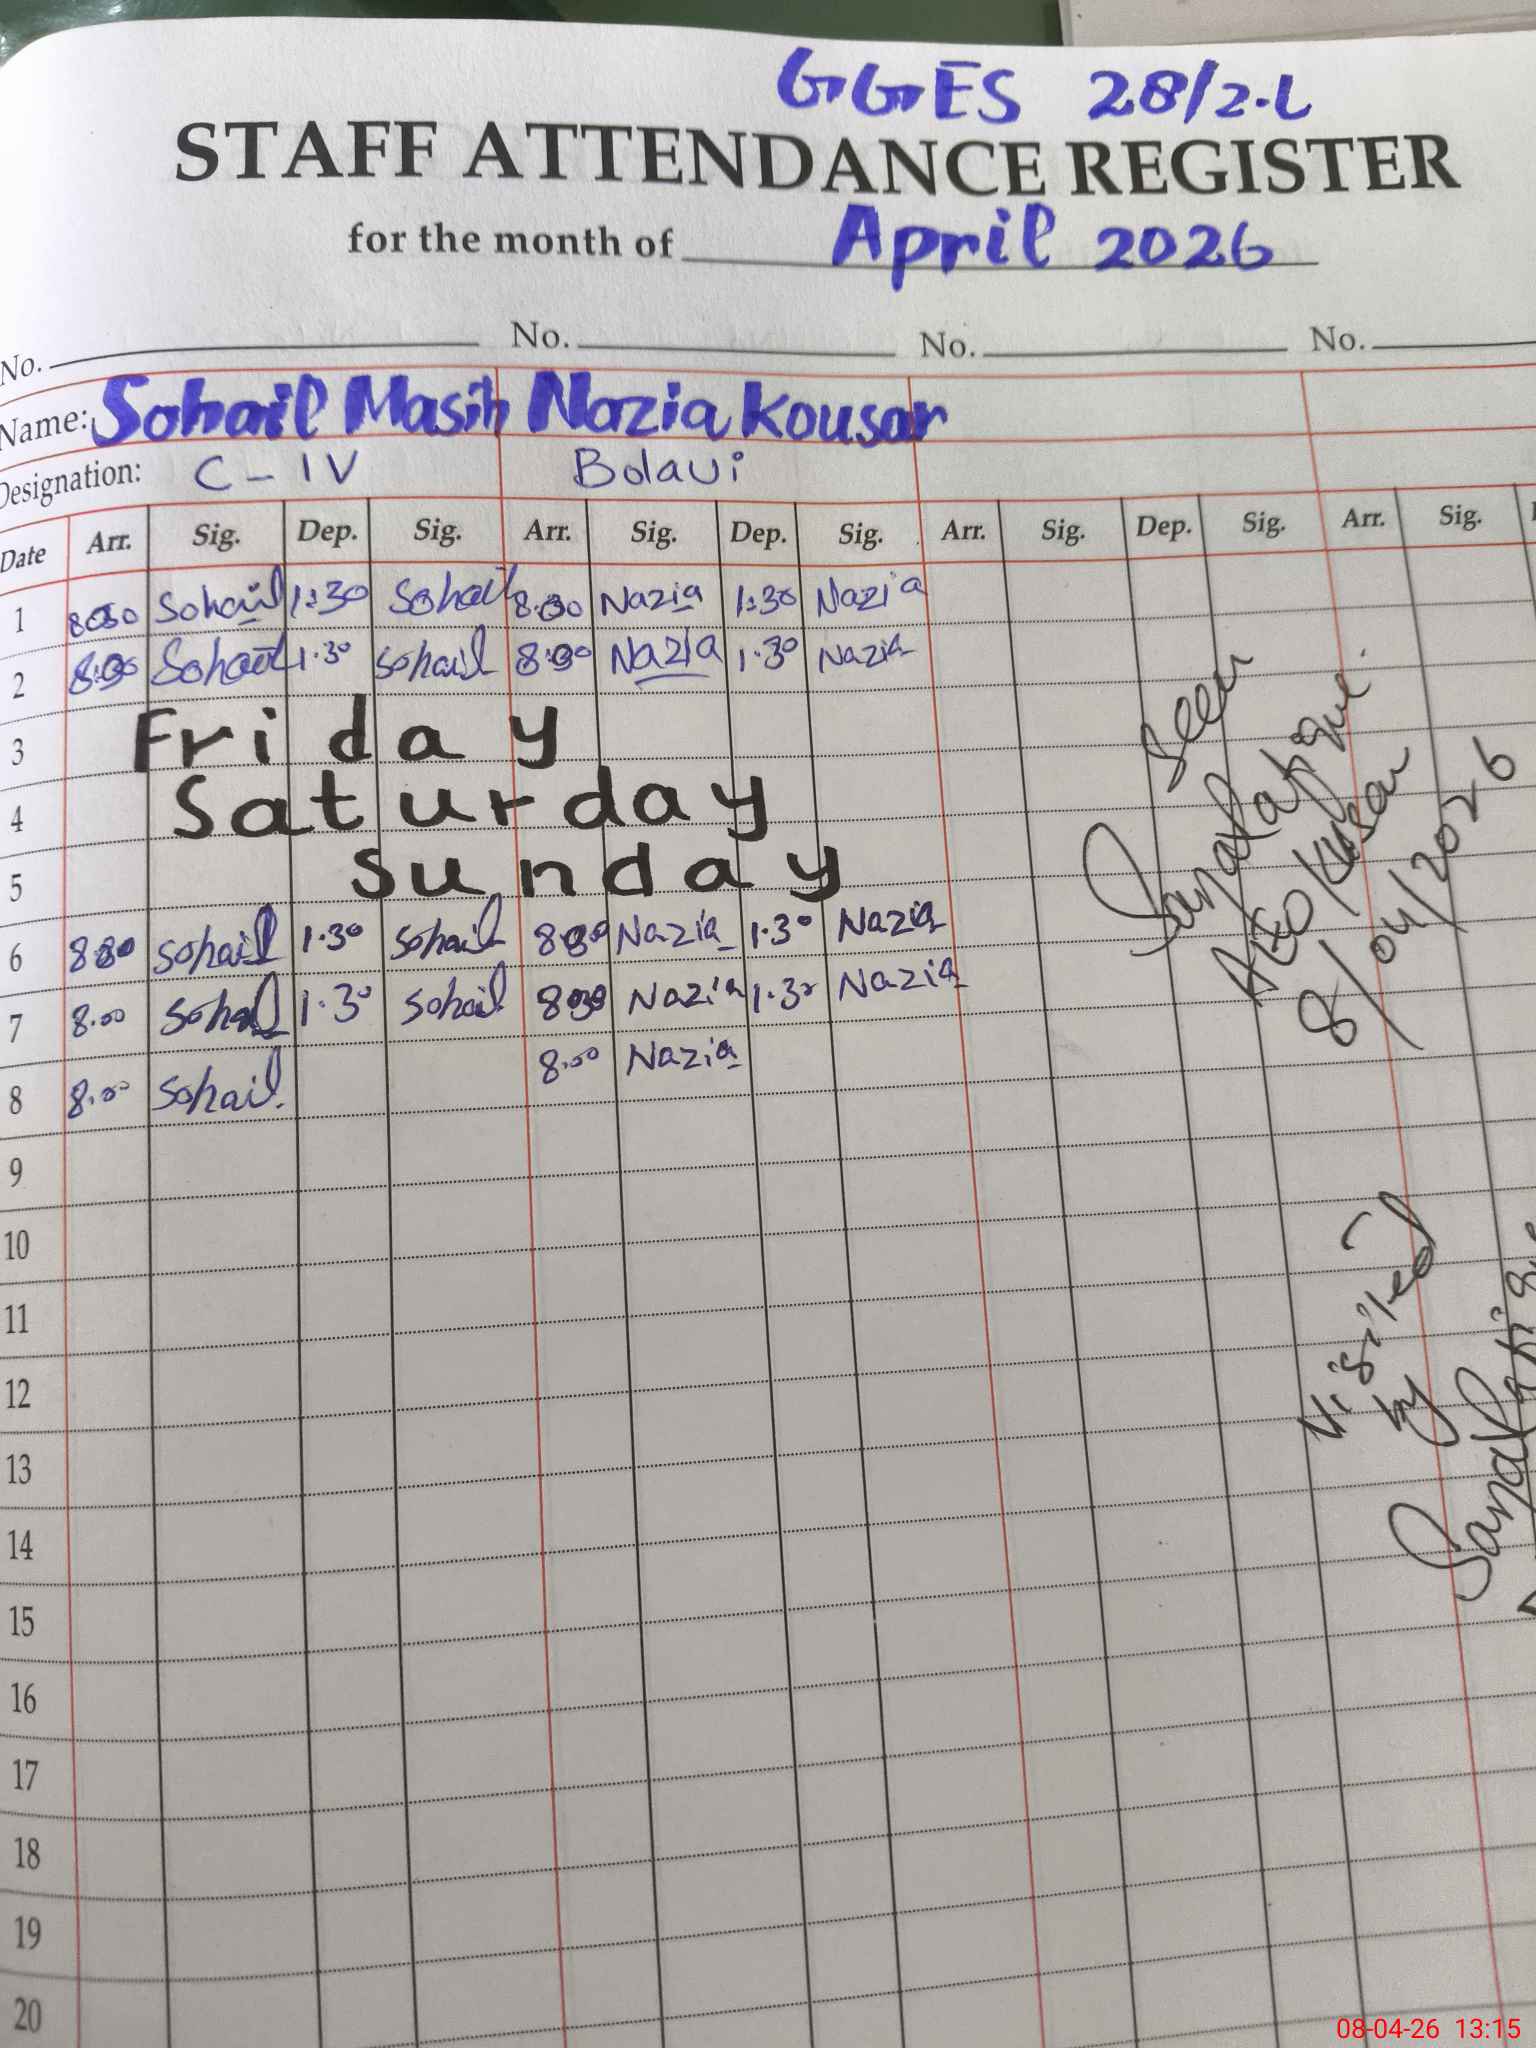 GGES 28/2.L
STAFF ATTENDANCE REGISTER
for the month of April 2026
No. No. No. No.
Name: Sohail Masih Nazia Kousar
Designation: C-IV
Date Arr. Sig. Dep. Sig. Arr. Sig. Dep. Sig. Arr. Sig. Dep. Sig. Arr. Sig.
1 Sohail 1:30 Sohail Nazia 1:30 Nazia
2 Sohail 1.30 Sohail Nazia 1.30 Nazia
3 Friday
4 Saturday
5 Sunday
6 Sohail 1.30 Sohail Nazia 1.30 Nazia
7 8.00 Sohail 1.30 Sohail Nazia 1.30 Nazia
8 8.00 Sohail. 8.00 Nazia
9
10
11
12
13
14
15
16
17
18
19
20
Seen
8/04/2026
Visited
by
08-04-26 13:15